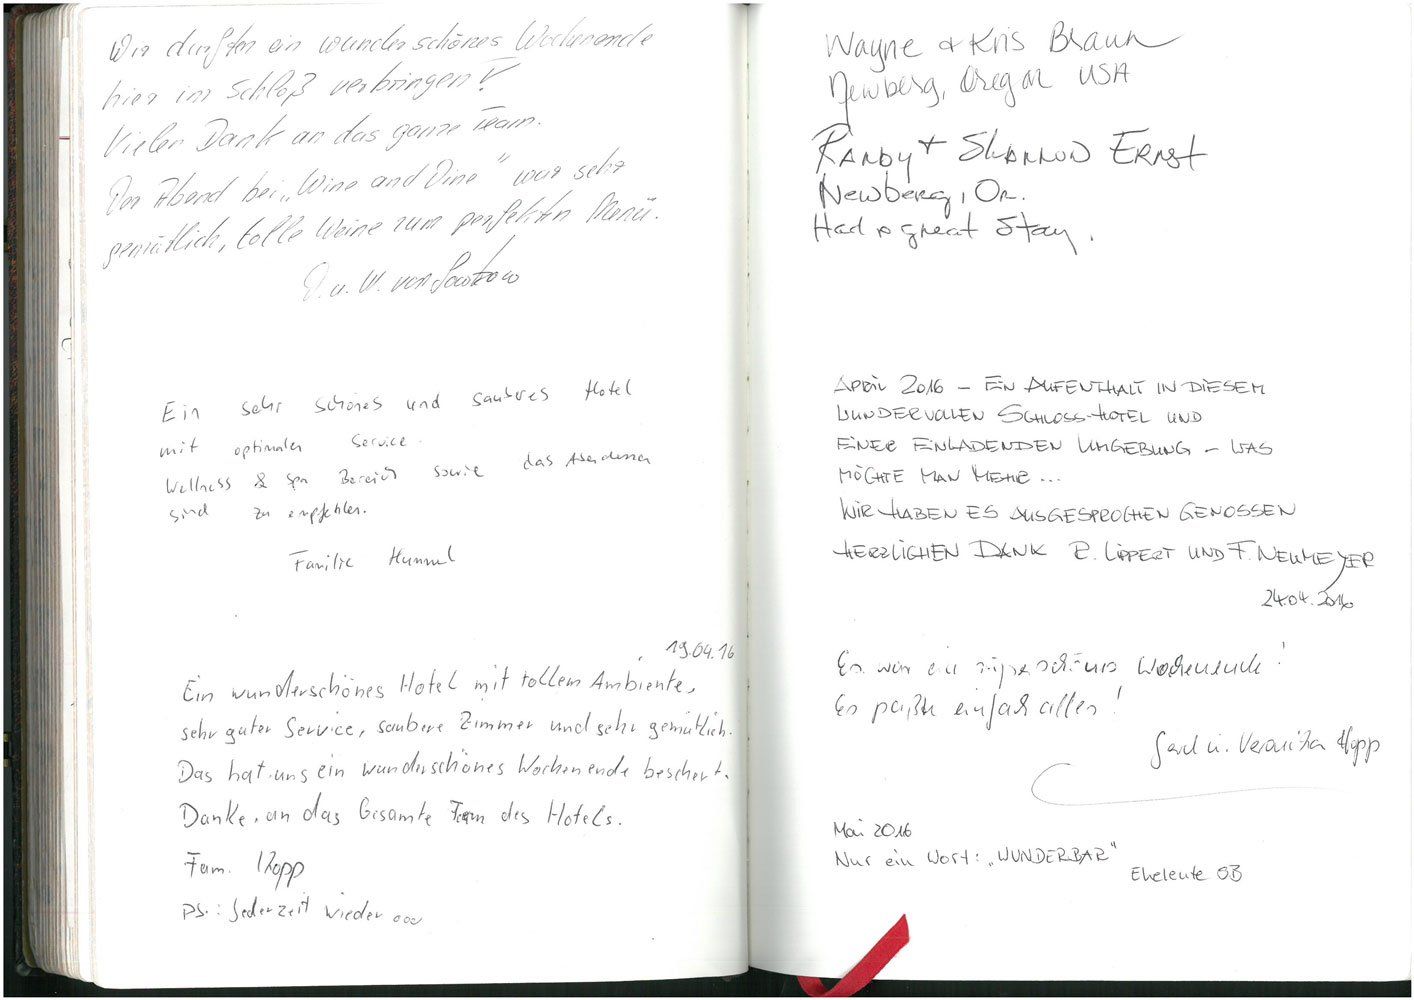 Wir durften ein wunderschönes Wochenende
hier im Schloß verbringen!
Vielen Dank an das ganze Team.
Der Abend bei „Wine and Dine" war sehr
gemütlich, tolle Weine zum perfekten Menü.
u. W. von
Ein sehr schönes und sauberes Hotel
mit optimalen Service.
Wellness & Spa Bereich sowie das Abendessen
sind zu empfehlen.
Familie Hummel
19.04.16
Ein wunderschönes Hotel mit tollem Ambiente,
sehr guter Service, saubere Zimmer und sehr gemütlich.
Das hat uns ein wunderschönes Wochenende beschert.
Danke, an das Gesamte Team des Hotels.
Fam. Kopp
PS.: Jederzeit wieder ...
Wayne + Kris Braun
Newberg, Oregon USA
Randy + Shannon Ernst
Newberg, Or.
Had a great Stay.
April 2016 – Ein Aufenthalt in diesem
wundervollen Schloss-Hotel und
einer einladenden Umgebung – was
möchte man mehr...
Wir haben es ausgesprochen genossen
Herzlichen Dank R. Lippert und F. Neumeyer
24.04.2016
Es war ein superschönes Wochenende!
Es paßte einfach alles!
Gerd u. Veronika
Mai 2016
Nur ein Wort: „WUNDERBAR"
Eheleute OB